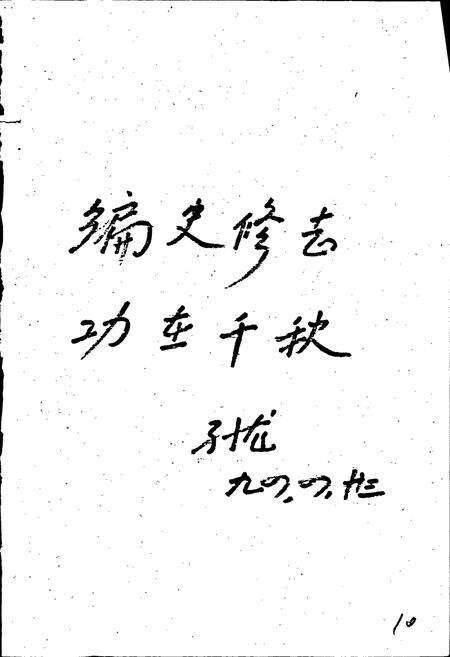 编史修志
功在千秋
九四.四.廿三
10